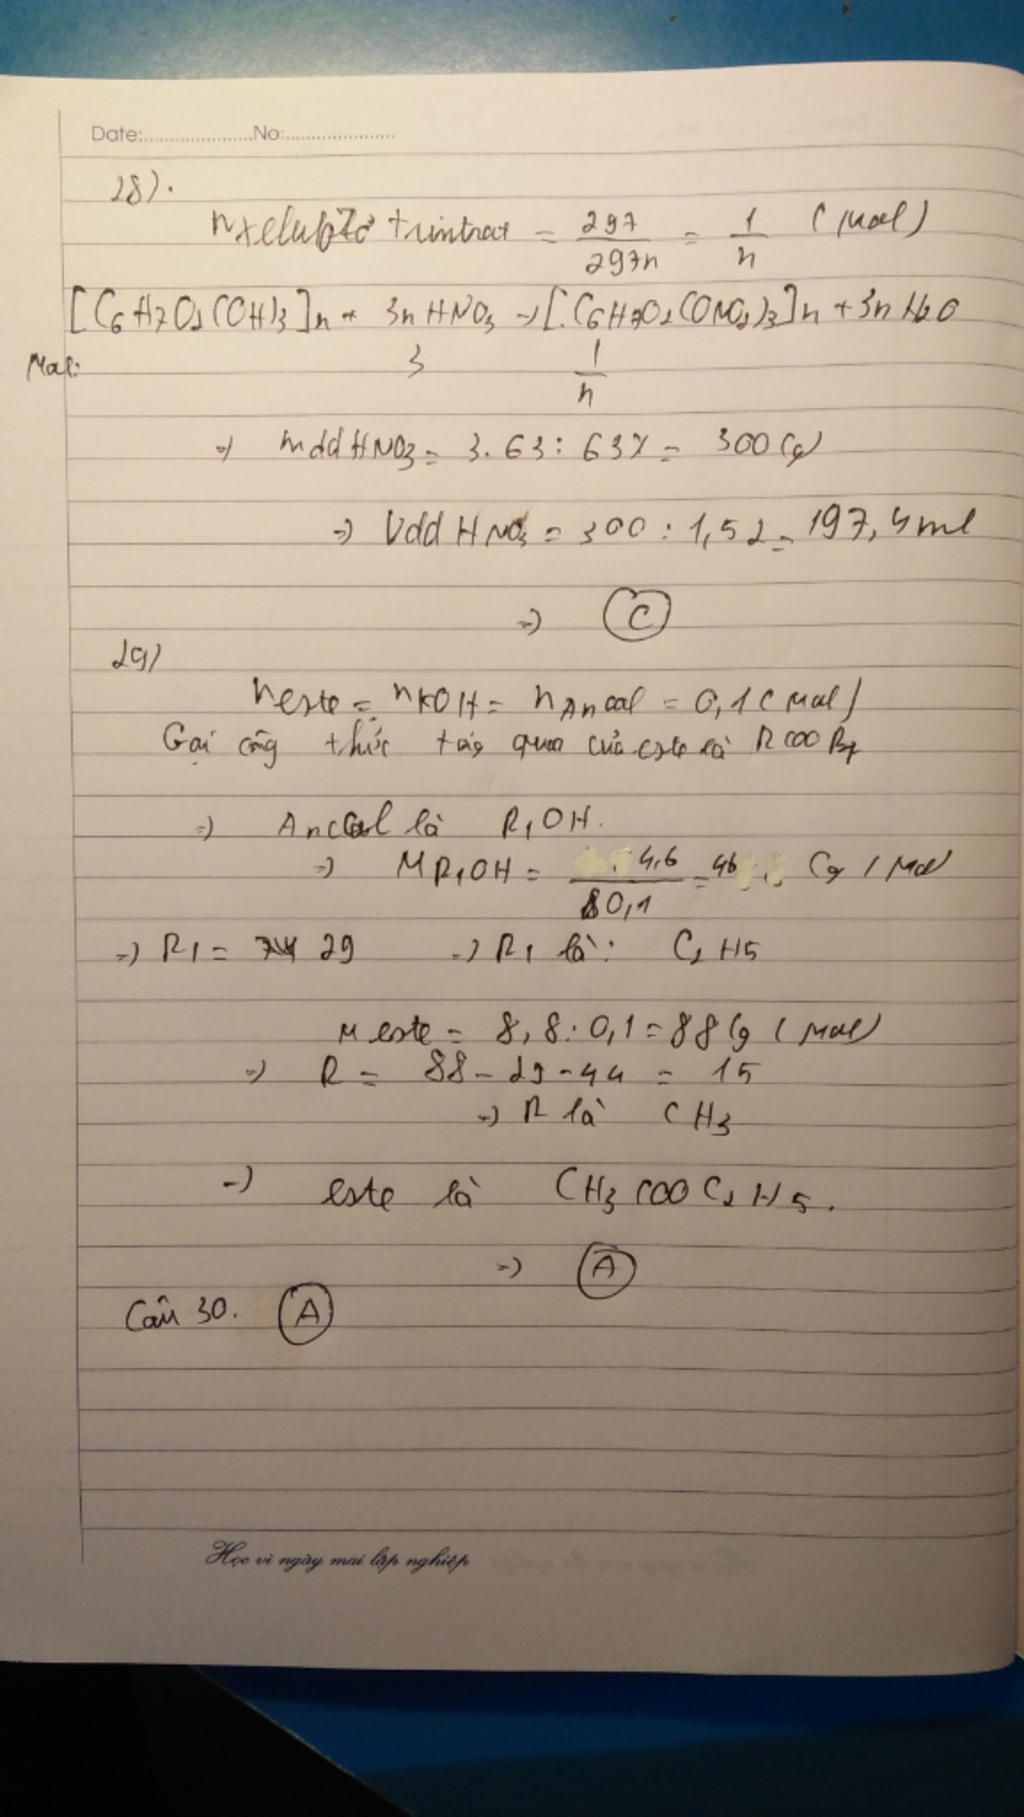 Date:....................No:....................
28).
n xelulozơ trintrat = 297 / 297n = 1 / n (mol)
[C6H7O2(OH)3]n + 3nHNO3 -> [C6H7O2(ONO2)3]n + 3nH2O
Mol: 3 1 / n
=> mdd HNO3 = 3.63 : 63% = 300 (g)
=> Vdd HNO3 = 300 : 1,52 = 197,4 ml
=> C
29)
n este = nKOH = n Ancol = 0,1 (mol)
Gọi công thức tổng quá của este là RCOOR1
=> Ancol là R1OH.
=> MR1OH = 4,6 / 0,1 = 46 (g / mol
=> R1 = 29 => R1 là: C2H5
M este = 8,8 : 0,1 = 88 (g / mol)
=> R = 88 - 29 - 44 = 15
=> R là CH3
=> este là CH3COOC2H5.
=> A
Câu 30. A
Học vì ngày mai lập nghiệp